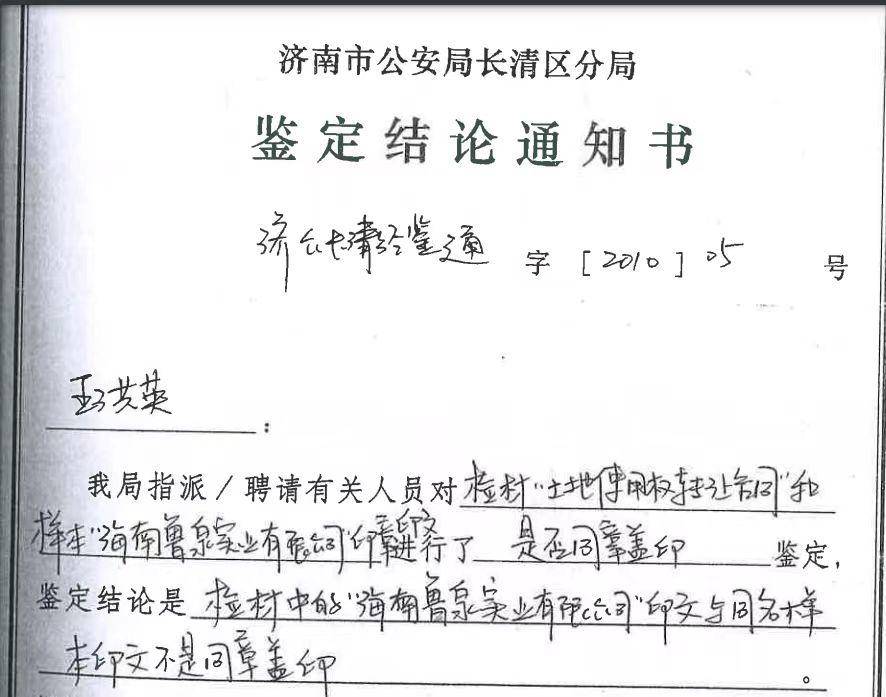 济南市公安局长清区分局
鉴定结论通知书
济公长清经鉴通 字 [2010] 05 号
王共英 :
我局指派/聘请有关人员对 检材"土地使用权转让合同"和
样本"海南鲁泉实业有限公司"印章印文进行了 是否同章盖印 鉴定,
鉴定结论是 检材中的"海南鲁泉实业有限公司"印文与同名样
本印文不是同章盖印 。